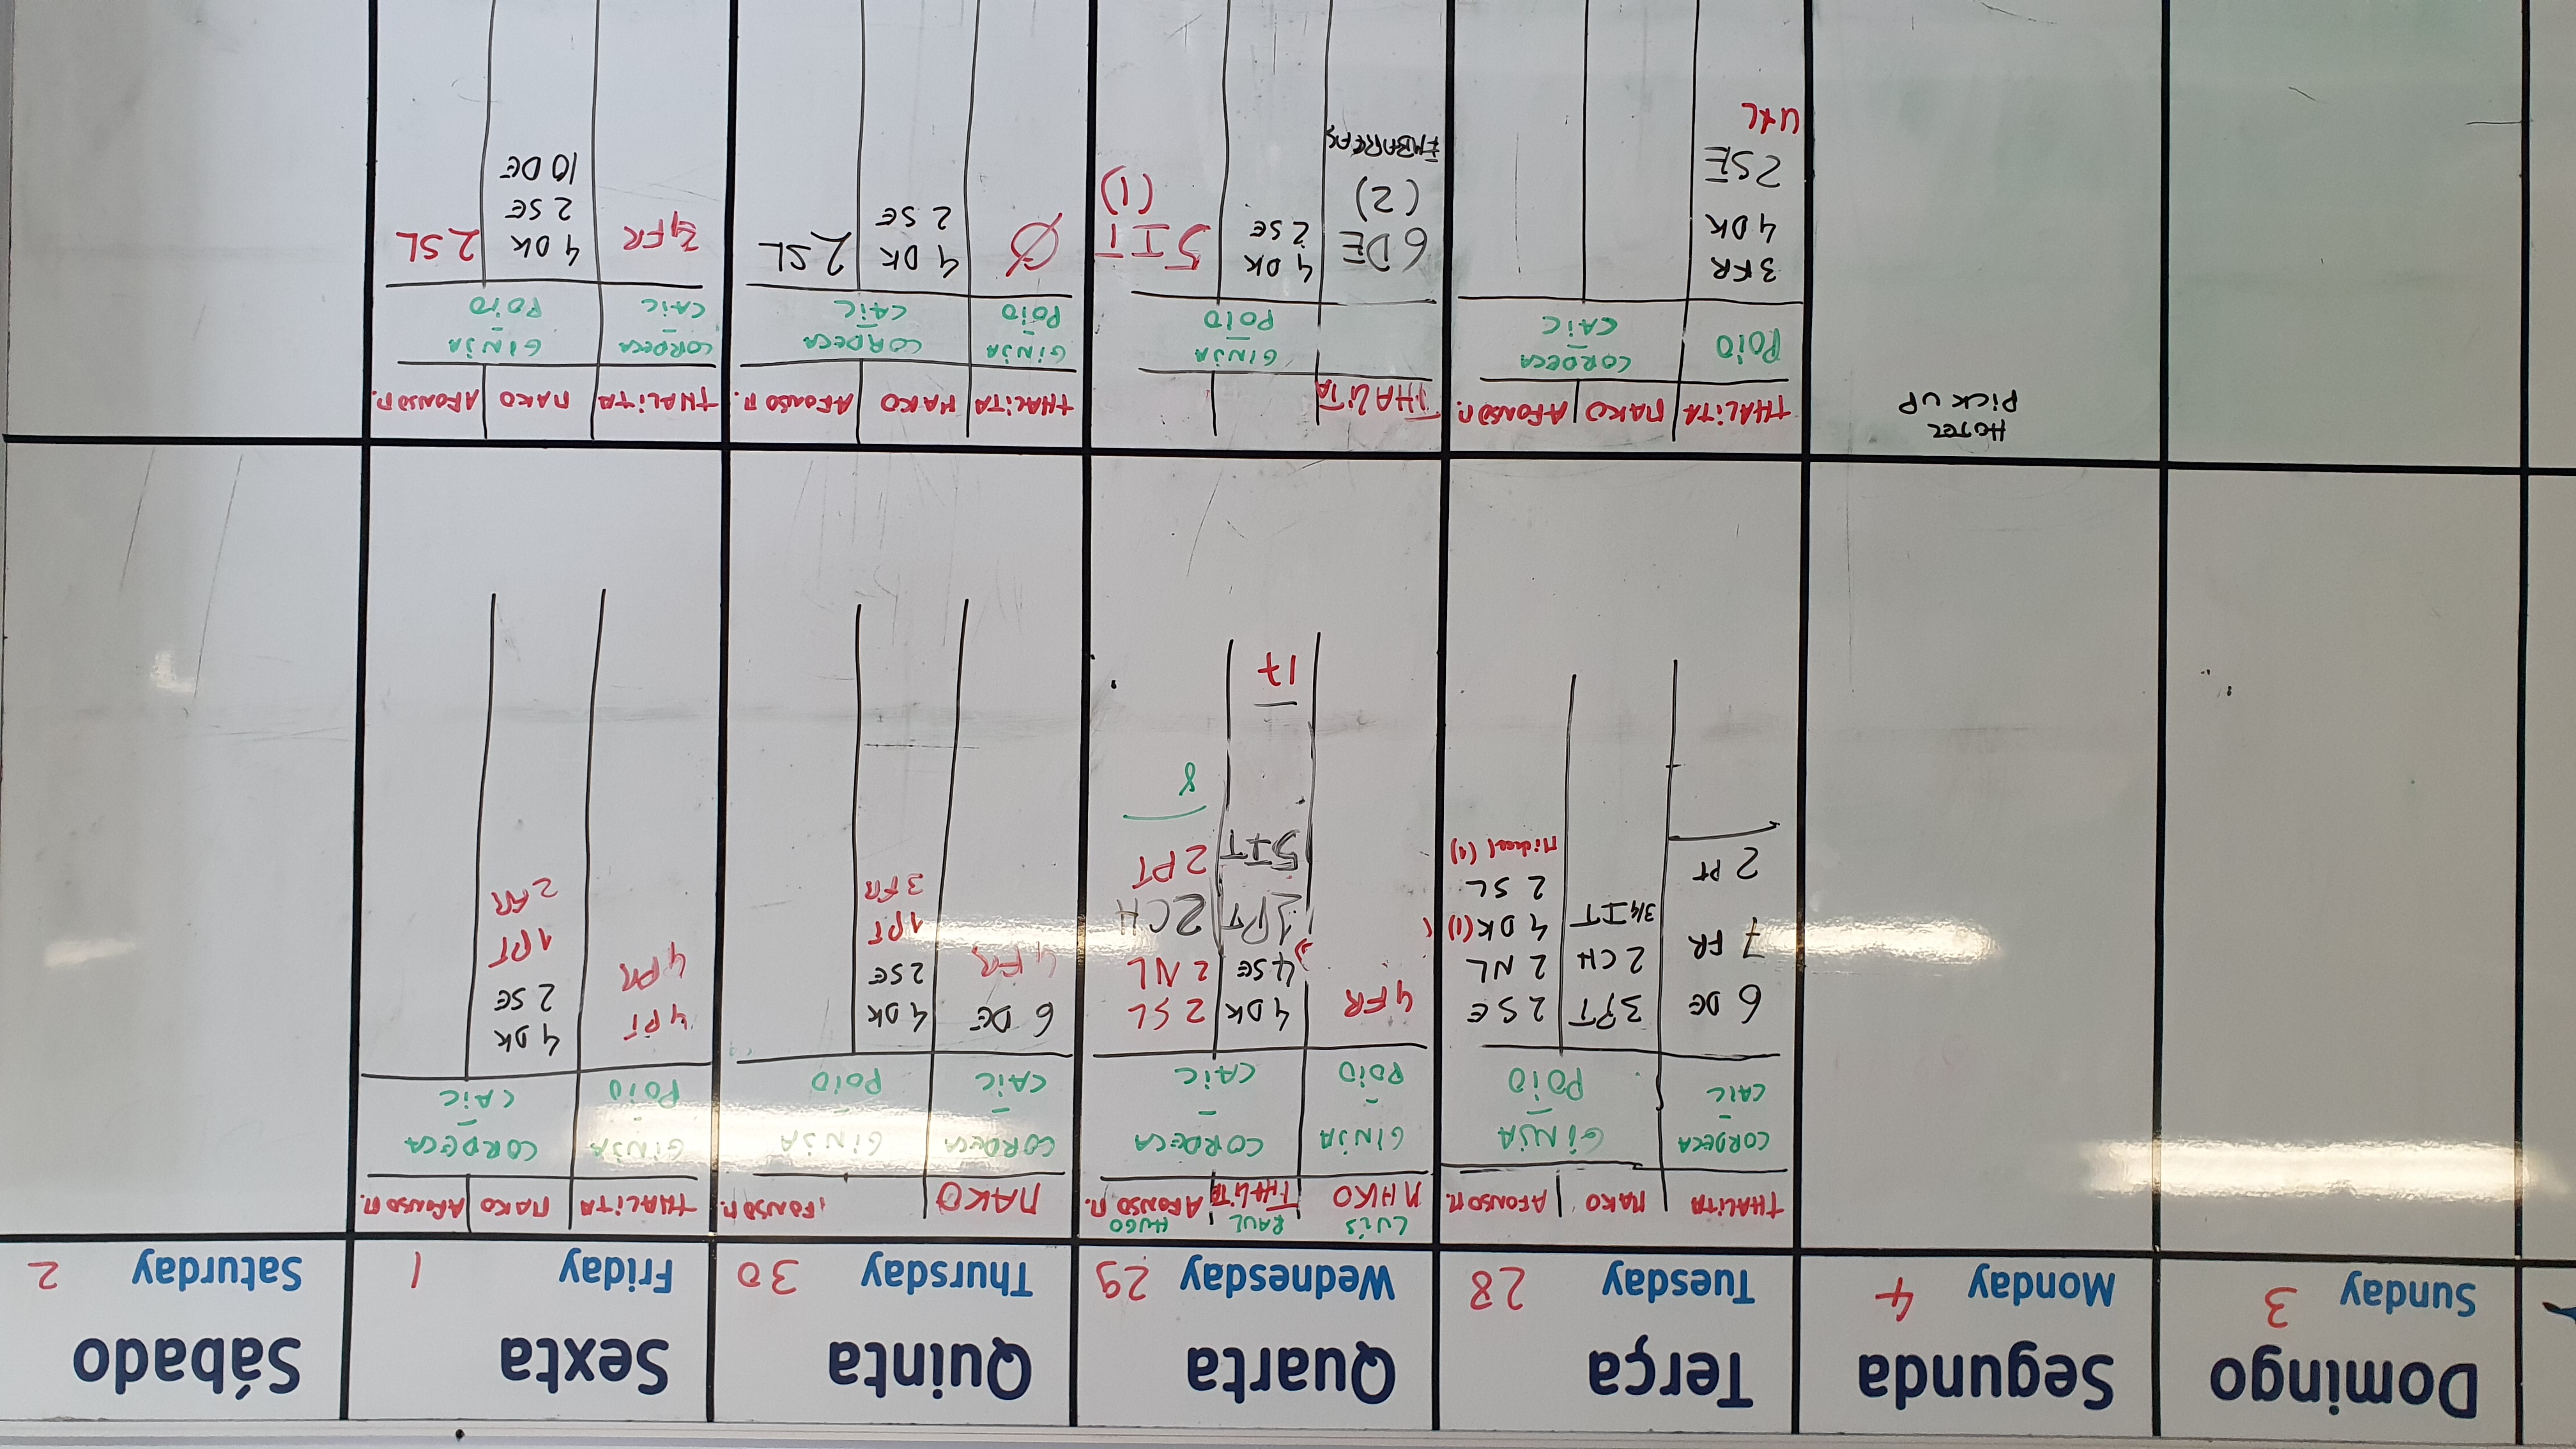 Domingo
Sunday 3
Segunda
Monday 4
Terça
Tuesday 28
Quarta
Wednesday 29
Quinta
Thursday 30
Sexta
Friday 1
Sábado
Saturday 2
THALITA MAKO AFONSO M.
CORDECA GINJA
- -
CAIC POIO
6 DE 3 PT 2 SE
7 FR 2 CH 2 NL
2 PT 3/4 IT 4 DK (1)
2 SL
Michael (1)
LUÍS RAUL HUGO
MAKO THALITA AFONSO M.
GINJA CORDECA
- -
POIO CAIC
4 FR 4 DK 2 SL
4 SE 2 NL
PT 2 CH
5 IT 2 PT
8
17
MAKO FONSO M.
CORDECA GINJA
- -
CAIC POIO
6 DE 4 DK
4 FR 2 SE
1 PT
3 FR
THALITA MAKO AFONSO M
GINJA CORDECA
- -
POIO CAIC
4 PT 4 DK
4 FR 2 SE
1 PT
2 FR
HOTEL
PICK UP
THALITA MAKO AFONSO M.
POIO CORDECA
-
CAIC
3 FR
4 DK
2 SE
THALITA
GINJA
-
POIO
6 DE 4 DK 5 IT
(2) 2 SE (1)
THALITA MAKO AFONSO M.
GINJA CORDECA
- -
POIO CAIC
Ø 4 DK 2 SL
2 SE
THALITA MAKO AFONSO M.
CORDECA GINJA
- -
CAIC POIO
FR 4 DK 2 SL
2 SE
10 DE